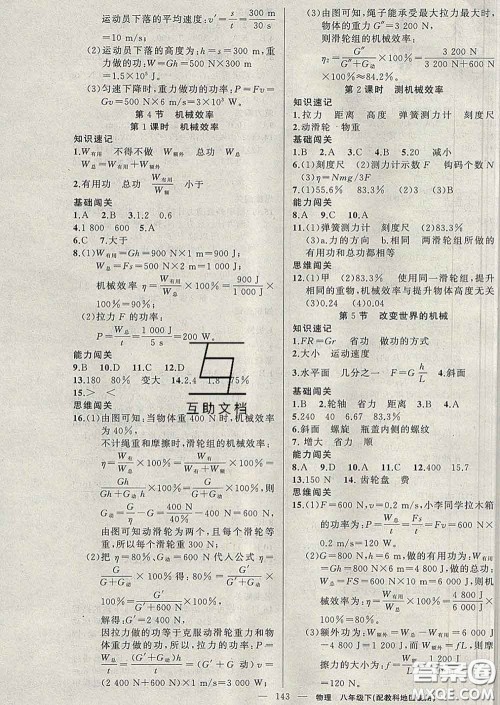 运动员下落的平均速度:v′=s/t=300 m/30 s
=10 m/s;
(2)运动员下落的高度为:h=s=300 m,
重力做的功为:W=Gh=500 N×300 m=
1.5×10⁵ J;
(3)匀速下降时,重力做功的功率:P=Fv=
Gv=500 N×10 m/s=5 000 W。
第4节 机械效率
第1课时 机械效率
知识速记
1.W有用 不得不做 W额外 总功 W总
W有用 W额外
2.有用功 总功 W有用/W总 小于
基础闯关
1.A 2.B 3.1.2 0.6
4.B 5.A
6.C 7.大于
8.(1)W有用=Gh=900 N×1 m=900 J;
W总=Fs=500 N×2 m=1 000 J;
机械效率:η=W有用/W总×100%=900 J/1 000 J×
100%=90%;
(2)拉力 F 的功率:
P=W总/t=1 000 J/5 s=200 W。
能力闯关
9.B 10.D 11.C 12.D
13.180 80% 变大 14.2.4 1.8 75%
15.> <
思维闯关
16.(1)由图可知:当物体重400 N时,机械效率
为40%,
不计绳重和摩擦时,滑轮组的机械效率:
η=W有用/W总×100%=W有用/(W有用+W额外)×100%=
Gh/(Gh+G动h)×100%=G/(G+G动)×100%,
即:400 N/(400 N+G动)=40%
由图可知动滑轮为两个,且每个滑轮等
重,所以每个滑轮重300 N;
(2)把η=80%、G动=600 N代人公式η=
G/(G+G动)×100%=G′/(G′+G动)×100%,
80%=G′/(G′+600 N)×100%,
解得:G′=2 400 N,
因拉力做的功等于克服动滑轮重力和物
体重力做的功,
则:W总=G′h+G动h=(G′+G动)h=
(2 400 N+600 N)×1 m=3 000 J;
(3)由图可知,绳子能承受最大拉力最大时,
物体的重力 G″=3 200 N,
滑轮组的机械效率:
η₂=G″/(G″+G动)×100%=3 200 N/(3 200 N+600 N)×
100%≈84.2%。
第2课时 测机械效率
知识速记
1.拉力 距离 高度 弹簧测力计 刻度尺
2.动滑轮 物重
基础闯关
1.B 2.A 3.C 4.D 5.B
6.(1)刻度尺 (2)测力计示数 F 钩码个数 N
(3)η=Nmg/3F
7.(1)55.6% (2)83.3% (3)B
能力闯关
8.A 9.C 10.A
11.(1)弹簧测力计 刻度尺 (2)83.3%
(3)a.力的方向 b.相同 两滑轮组所做的有用
功和总功都相等
思维闯关
12.(1)甲 (2)83.3% 使用同一滑轮组,提升
相同的重物,机械效率与提升物体高度无关
(3)C
第5节 改变世界的机械
知识速记
1.FR=Gr 省功 做功的方式
2.大小 运动速度
3.水平面 几分之一 F=G h/L 4.斜面
基础闯关
1.B 2.轮轴 省力 距离 3.B 4.D 5.B
6.(1)斜面 螺旋 瓶盖内侧的螺纹
7.增大 省力 乙
能力闯关
8.A 9.D 10.C 11.D 12.400 15.7
13.150 N 14.齿轮盘 费
思维闯关
15.(1)F=600 N,v=0.2 m/s,小李同学拉木箱
的功率为:P=W/t=FS/t=Fv=600 N×
0.2 m/s=120 W。
(2)G=800 N,h=6 m,做的有用功为:W有用
=Gh=800 N×6 m=4 800 J,S=10 m,
做的总功为:
W总=FS=600 N×10 m=6 000 J,
机械效率为:η=W有用/W总=4 800 J/6 000 J×
100%=80%;
(3)额外功为:W额外=W总-W有用=6 000 J-
4 800 J=1 200 J,而 W额外=fS,所以受到摩
擦力的大小为:
互助文档
143
物理 八年级下